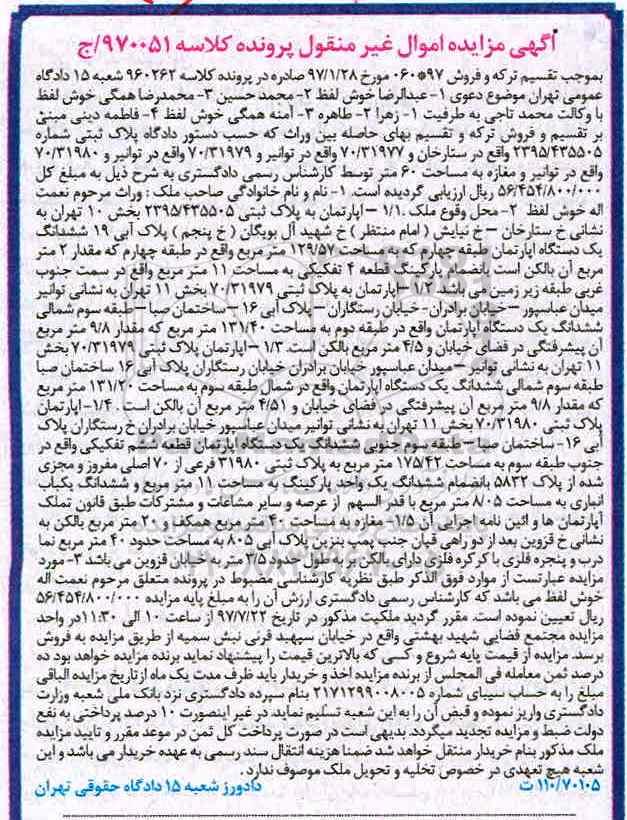 آگهی مزایده اموال غیر منقول پرونده کلاسه ۹۷۰۰۵۱/ج
بموجب تقسیم ترکه و فروش ۹۷*۰۶۰ مورخ ۹۷/۱/۲۸ صادره در پرونده کلاسه ۹۶۰۲۶۲ شعبه ۱۵ دادگاه
عمومی تهران موضوع دعوی ۱- عبدالرضا خوش لفظ ۲- محمد حسین ۳- محمدرضا همگی خوش لفظ
با وکالت محمد تاجی به طرفیت ۱- زهرا ۲- طاهره ۳- آمنه همگی خوش لفظ ۴- فاطمه دینی مبنی
بر تقسیم و فروش ترکه و تقسیم بهای حاصله بین وراث که حسب دستور دادگاه پلاک ثبتی شماره
۲۳۹۵/۴۳۵۵۰۵ واقع در ستارخان و ۷۰/۳۱۹۷۷ واقع در توانیر و ۷۰/۳۱۹۷۹ واقع در توانیر و ۷۰/۳۱۹۸۰
واقع در توانیر و مغازه به مساحت ۶۰ متر توسط کارشناس رسمی دادگستری به شرح ذیل به مبلغ کل
۵۶/۴۵۴/۸۰۰/۰۰۰ ریال ارزیابی گردیده است. ۱- نام و نام خانوادگی صاحب ملک : وراث مرحوم نعمت
اله خوش لفظ ۲- محل وقوع ملک .۱/۱ – آپارتمان به پلاک ثبتی ۲۳۹۵/۴۳۵۵۰۵ بخش ۱۰ تهران به
نشانی خ ستارخان – خ نیایش ( امام منتظر ) خ شهید آل بویگان ( خ پنجم ) پلاک آبی ۱۹ ششدانگ
یک دستگاه آپارتمان طبقه چهارم که به مساحت ۱۲۹/۵۷ متر مربع واقع در طبقه چهارم که مقدار ۲ متر
مربع آن بالکن است بانضمام پارکینگ قطعه ۴ تفکیکی به مساحت ۱۱ متر مربع واقع در سمت جنوب
غربی طبقه زیر زمین می باشد ۱/۲ – آپارتمان به پلاک ثبتی ۷۰/۳۱۹۷۹ بخش ۱۱ تهران به نشانی توانیر
میدان عباسپور – خیابان برادران- خیابان رستگاران – پلاک آبی ۱۶ – ساختمان صبا – طبقه سوم شمالی
ششدانگ یک دستگاه آپارتمان واقع در طبقه دوم به مساحت ۱۳۱/۴۰ متر مربع که مقدار ۹/۸ متر مربع
آن پیشرفتگی در فضای خیابان و ۴/۵ متر مربع بالکن است. ۱/۳ – اپارتمان پلاک ثبتی ۷۰/۳۱۹۷۹ بخش
۱۱ تهران به نشانی توانیر – میدان عباسپور خیابان برادران خیابان رستگاران پلاک آبی ۱۶ ساختمان صبا
طبقه سوم شمالی ششدانگ یک دستگاه آپارتمان واقع در شمال طبقه سوم به مساحت ۱۳۱/۲۰ متر مربع
که مقدار ۹/۸ متر مربع آن پیشرفتگی در فضای خیابان و ۴/۵۱ متر مربع آن بالکن است . ۱/۴- اپارتمان
پلاک ثبتی ۷۰/۳۱۹۸۰ بخش ۱۱ تهران به نشانی توانیر میدان عباسپور خیابان برادران خ رستگاران پلاک
آبی ۱۶- ساختمان صبا – طبقه سوم جنوبی ششدانگ یک دستگاه آپارتمان قطعه ششم تفکیکی واقع در
جنوب طبقه سوم به مساحت ۱۷۵/۴۲ متر مربع به پلاک ثبتی ۳۱۹۸۰ فرعی از ۷۰ اصلی مفروز و مجزی
شده از پلاک ۵۸۳۲ بانضمام ششدانگ یک واحد پارکینگ به مساحت ۱۱ متر مربع و ششدانگ یکباب
انباری به مساحت ۸۰۵ متر مربع با قدر السهم از عرصه و سایر مشاعات و مشترکات طبق قانون تملک
آپارتمان ها و ائین نامه اجرایی آن ۱/۵- مغازه به مساحت ۴۰ متر مربع همکف و ۲۰ متر مربع بالکن به
نشانی خ قزوین بعد از دو راهی قپان جنب پمپ بنزین پلاک آبی ۸۰۵ به مساحت حدود ۴۰ متر مربع نما
درب و پنجره فلزی با کرکره فلزی دارای بالکن بر به طول حدود ۳/۵ متر به خیابان قزوین می باشد ۳- مورد
مزایده عبارتست از موارد فوق الذکر طبق نظریه کارشناسی مضبوط در پرونده متعلق مرحوم نعمت اله
خوش لفظ می باشد که کارشناس رسمی دادگستری ارزش آن را به مبلغ پایه مزایده ۵۶/۴۵۴/۸۰۰/۰۰۰
ریال تعیین نموده است. مقرر گردید ملکیت مذکور در تاریخ ۹۷/۷/۲۲ از ساعت ۱۰ الی ۱۱:۳۰ در واحد
مزایده مجتمع قضایی شهید بهشتی واقع در خیابان سپهبد قرنی نبش سمیه از طریق مزایده به فروش
برسد. مزایده از قیمت پایه شروع و کسی که بالاترین قیمت را پیشنهاد نماید برنده مزایده خواهد بود ده
درصد ثمن معامله فی المجلس از برنده مزایده اخذ و خریدار باید ظرف مدت یک ماه از تاریخ مزایده الباقی
مبلغ را به حساب سیبای شماره ۲۱۷۱۲۹۹۰۰۸۰۰۵ بنام سپرده دادگستری نزد بانک ملی شعبه وزارت
دادگستری واریز نموده و قبض آن را به این شعبه تسلیم نماید. در غیر اینصورت ۱۰ درصد پرداختی به نفع
دولت ضبط و مزایده تجدید میگردد. بدیهی است در صورت پرداخت کل ثمن در موعد مقرر و تایید مزایده
ملک مذکور بنام خریدار منتقل خواهد شد ضمنا هزینه انتقال سند رسمی به عهده خریدار می باشد و این
شعبه هیچ تعهدی در خصوص تخلیه و تحویل ملک موصوف ندارد .
۱۱۰/۷۰۱۰۵ ت دادورز شعبه ۱۵ دادگاه حقوقی تهران